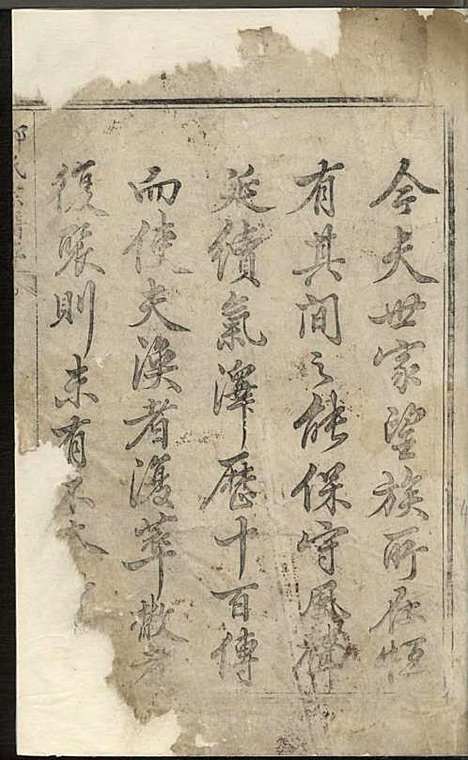 今夫世家望族所在恒
有其间之能保守風
延續氣澤歷十百傳
而使夫渙者復萃散者
復聚則未有不